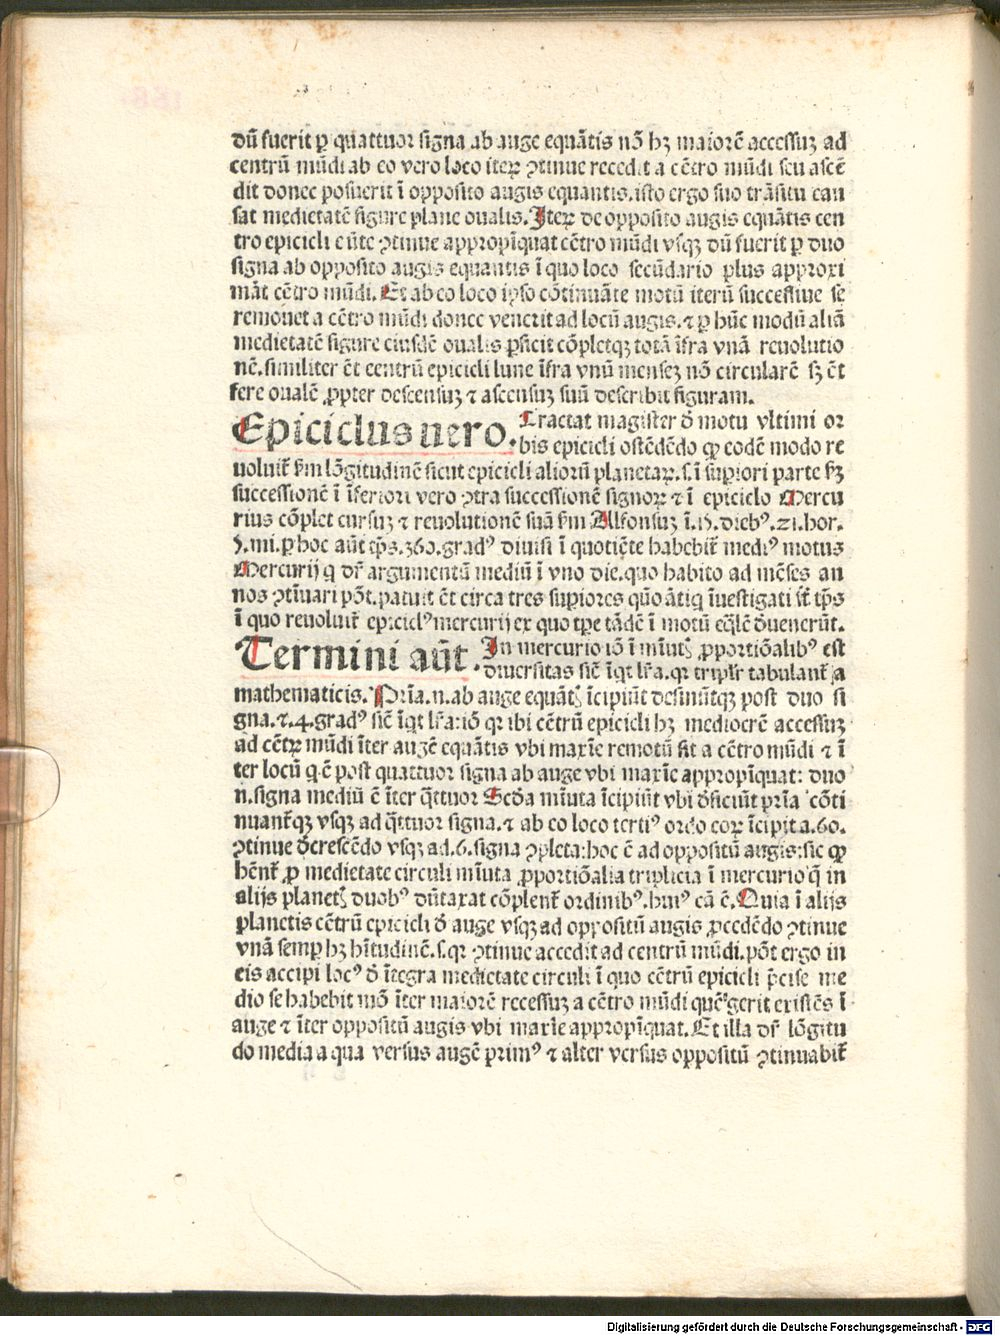 dū fuerit ꝑ quattuor signa ab auge equātis nō hꝫ maiorē accessuꝫ ad
centrū mūdi ab eo vero loco iteꝝ ꝯtinue recedit a cētro mūdi seu ascē
dit donec posuerit ī opposito augis equantis. isto ergo suo trāsitu cau
sat medietatē figure plane oualis. Iteꝝ de opposito augis equātis cen
tro epicicli eūte ꝯtinue appropīquat cētro mūdi vsqꝫ dū fuerit ꝑ duo
signa ab opposito augis equantis ī quo loco secūdario plus approxi
māt cētro mūdi. Et ab eo loco ipso cōtinuāte motū iterū successiue se
remouet a cētro mūdi donec venerit ad locū augis. ⁊ ꝑ hūc modū aliā
medietatē figure eiusdē oualis ꝑficit cōpletqꝫ totā īfra vnā reuolutio
nē. similiter ēt centrū epicicli lune īfra vnū menseꝫ nō circularē sꝫ ēt
fere oualē ꝓpter descensuꝫ ⁊ ascensuꝫ suū describit figuram.
Epiciclus uero. Tractat magister đ motu vltimi or
bis epicicli ostēdēdo ꝙ eodē modo re
uoluit̄ ẜm lōgitudinē sicut epicicli aliorū planetaꝝ. s. ī supiori parte ẜꝫ
successionē ī īferiori vero ꝯtra successionē signoꝝ ⁊ ī epiciclo Mercu
rius cōplet cursuꝫ ⁊ reuolutionē suā ẜm Alfonsuꝫ ī. 115. dieb⁹. 21. hor.
5. mi. ꝑ hoc aūt tꝑs. 360. grad⁹ diuisi ī quotiēte habebit̄ medi⁹ motus
Mercurij q dr̄ argumentū mediū ī vno die. quo habito ad mēses an
nos ꝯtīuari pōt. patuit ēt circa tres supiores quō ātiq īuestigati s̄t tꝑs
ī quo reuoluit̄ epicicl⁹ mercurij ex quo tꝑe tādē ī motū eq̄lē đuenerūt.
Termini aūt. In mercurio iō ī mīutꝭ ꝓportiōalib⁹ est
diuersitas sic̄ īqt lr̄a. qꝛ triplr̄ tabulant̄ a
mathematicis. Prīa. n. ab auge equātꝭ īcipiūt desinūtqꝫ post duo si
gna. ⁊. 4. grad⁹ sic̄ īqt lr̄a: iō qꝛ ibi cētrū epicicli hꝫ mediocrē accessuꝫ
ad cētꝝ mūdi īter augē equātis vbi maxīe remotū fit a cētro mūdi ⁊ ī
ter locū q ē post quattuor signa ab auge vbi maxīe appropīquat: duo
n. signa mediū ē īter q̄ttuor Scđa mīuta īcipiūt vbi đficiūt prīa cōti
nuant̄qꝫ vsqꝫ ad q̄ttuor signa. ⁊ ab eo loco terti⁹ ordo eoꝝ īcipit a. 60.
ꝯtinue đcrescēdo vsqꝫ ad. 6. signa ꝯpleta: hoc ē ad oppositū augis: sic ꝙ
hēnt̄ ꝓ medietate circuli mīuta ꝓportiōalia triplicia ī mercurio q̄ in
alijs planetꝭ duob⁹ dūtaxat cōplent̄ ordinib⁹. hui⁹ cā ē. Quia ī alijs
planetis cētrū epicicli đ auge vsqꝫ ad oppositū augis ꝓcedēdo ꝯtinue
vnā semꝑ hꝫ hītudinē. s. qꝛ ꝯtinue accedit ad centrū mūdi. pōt ergo in
eis accipi loc⁹ đ ītegra medietate circuli ī quo cētrū epicicli p̄cise me
dio se habebit mō īter maiorē recessuꝫ a cētro mūdi quē gerit existēs ī
auge ⁊ īter oppositū augis vbi maxīe appropīquat. Et illa dr̄ lōgitu
do media a qua versus augē prim⁹ ⁊ alter versus oppositū ꝯtinuabit̄
Digitalisierung gefördert durch die Deutsche Forschungsgemeinschaft - DFG